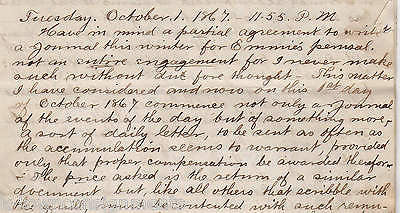 Tuesday. October. 1. 1867. 11.55. P.M.
Have in mind a partial agreement to write
a Journal this winter for Emmie's perusal
not an entire engagement for I never make
such without due fore thought. This matter
I have considered and now on this 1st day
of October 1867 commence not only a Journal
of the events of the day but of something more,
a sort of daily letter, to be sent as often as
the accumulation seems to warrant, provided
only that proper compensation be awarded therefor
The price asked is the return of a similar
document but like all others that scribble with
the quill, I must be contented with such remu-